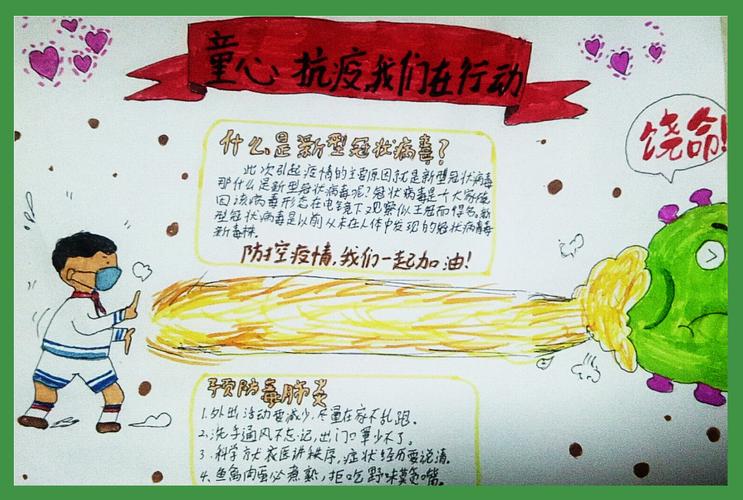 童心 抗疫,我们在行动
饶命!
什么是新型冠状病毒?
此次引起疫情的主要原因就是新型冠状病毒
那什么是新型冠状病毒呢?冠状病毒是个大家族
因该病毒形态在电镜下观察似王冠而得名,新
型冠状病毒是以前从未在人体中发现的冠状病毒毒
新毒株。
防控疫情,我们一起加油!
预防毒肺炎
1.外出活动要减少,尽量在家不乱跑。
2.洗手通风不忘记,出门口罩少不了。
3.科学就医讲秩序,症状经历要说清。
4.鱼禽肉蛋必煮熟,拒吃野味